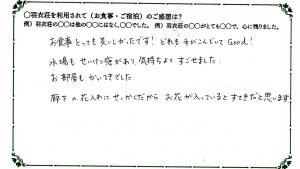 〇羽衣荘を利用されて(お食事・ご宿泊)のご感想は?
例)羽衣荘の〇〇は他の〇〇にはなく、〇〇でした。 例)羽衣荘の〇〇がとても〇〇で、心に残りました。
お食事とっても美しかったです! どれも手がこんでいて Good!
水場も せいけつ感があり、気持ちよく すごせました。
お部屋も かいてきでした
廊下の 花入れに せっかくだから お花が入っていると すてきだと思います